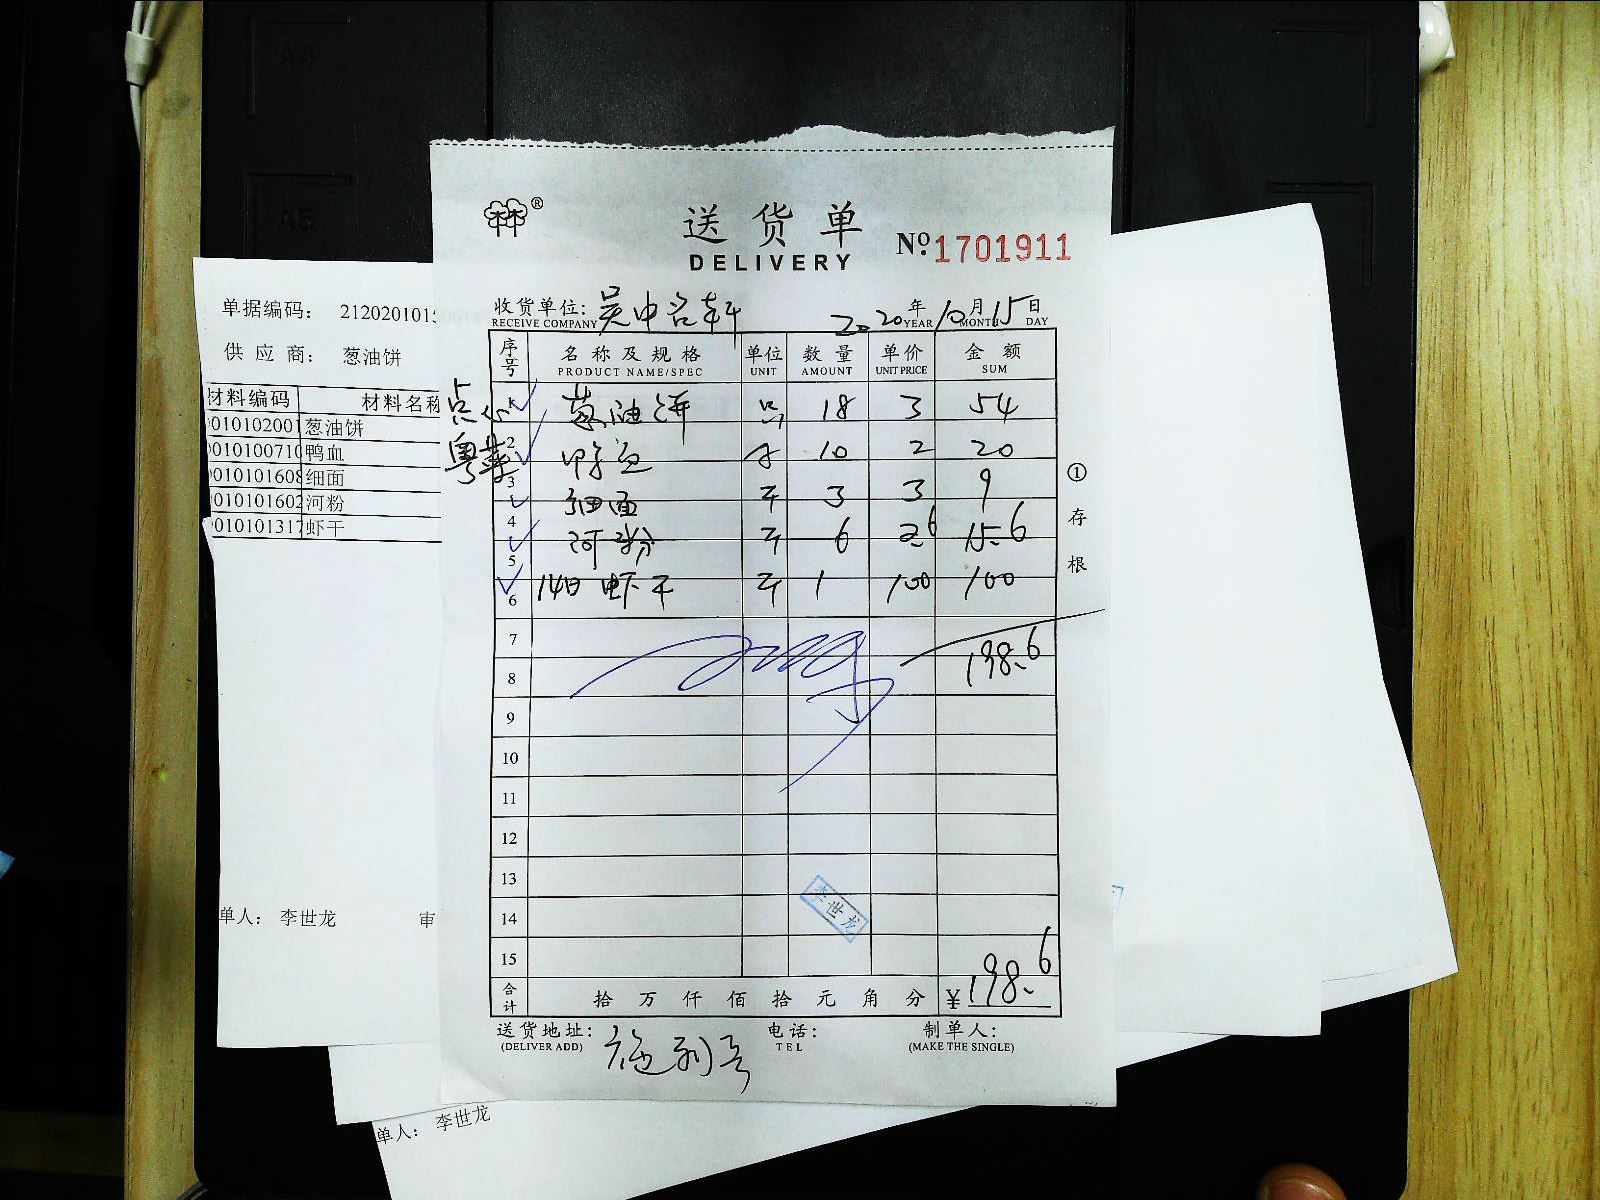 送货单
DELIVERY
№ 1701911
收货单位: 吴中名轩 2020年10月15日
RECEIVE COMPANY YEAR MONTH DAY
序号 名称及规格 单位 数量 单价 金额
PRODUCT NAME/SPEC UNIT AMOUNT UNIT PRICE SUM
点心 1 葱油饼 18 3 54
粤菜 2 鸭血 10 2 20
3 细面 斤 3 3 9
4 河粉 斤 6 2.6 15.6
5
6 14日 虾干 斤 1 100 100
7
198.6
8
9
10
11
12
13
李世龙
14
15
合计 拾万仟佰拾元角分 ¥198.6
送货地址: 电话: 制单人:
(DELIVER ADD) TEL (MAKE THE SINGLE)
①存根
单据编码: 212020101
供应商: 葱油饼
材料编码 材料名称
010102001 葱油饼
010100710 鸭血
010101608 细面
010101602 河粉
010101317 虾干
单人: 李世龙 审
单人: 李世龙
A4
A5